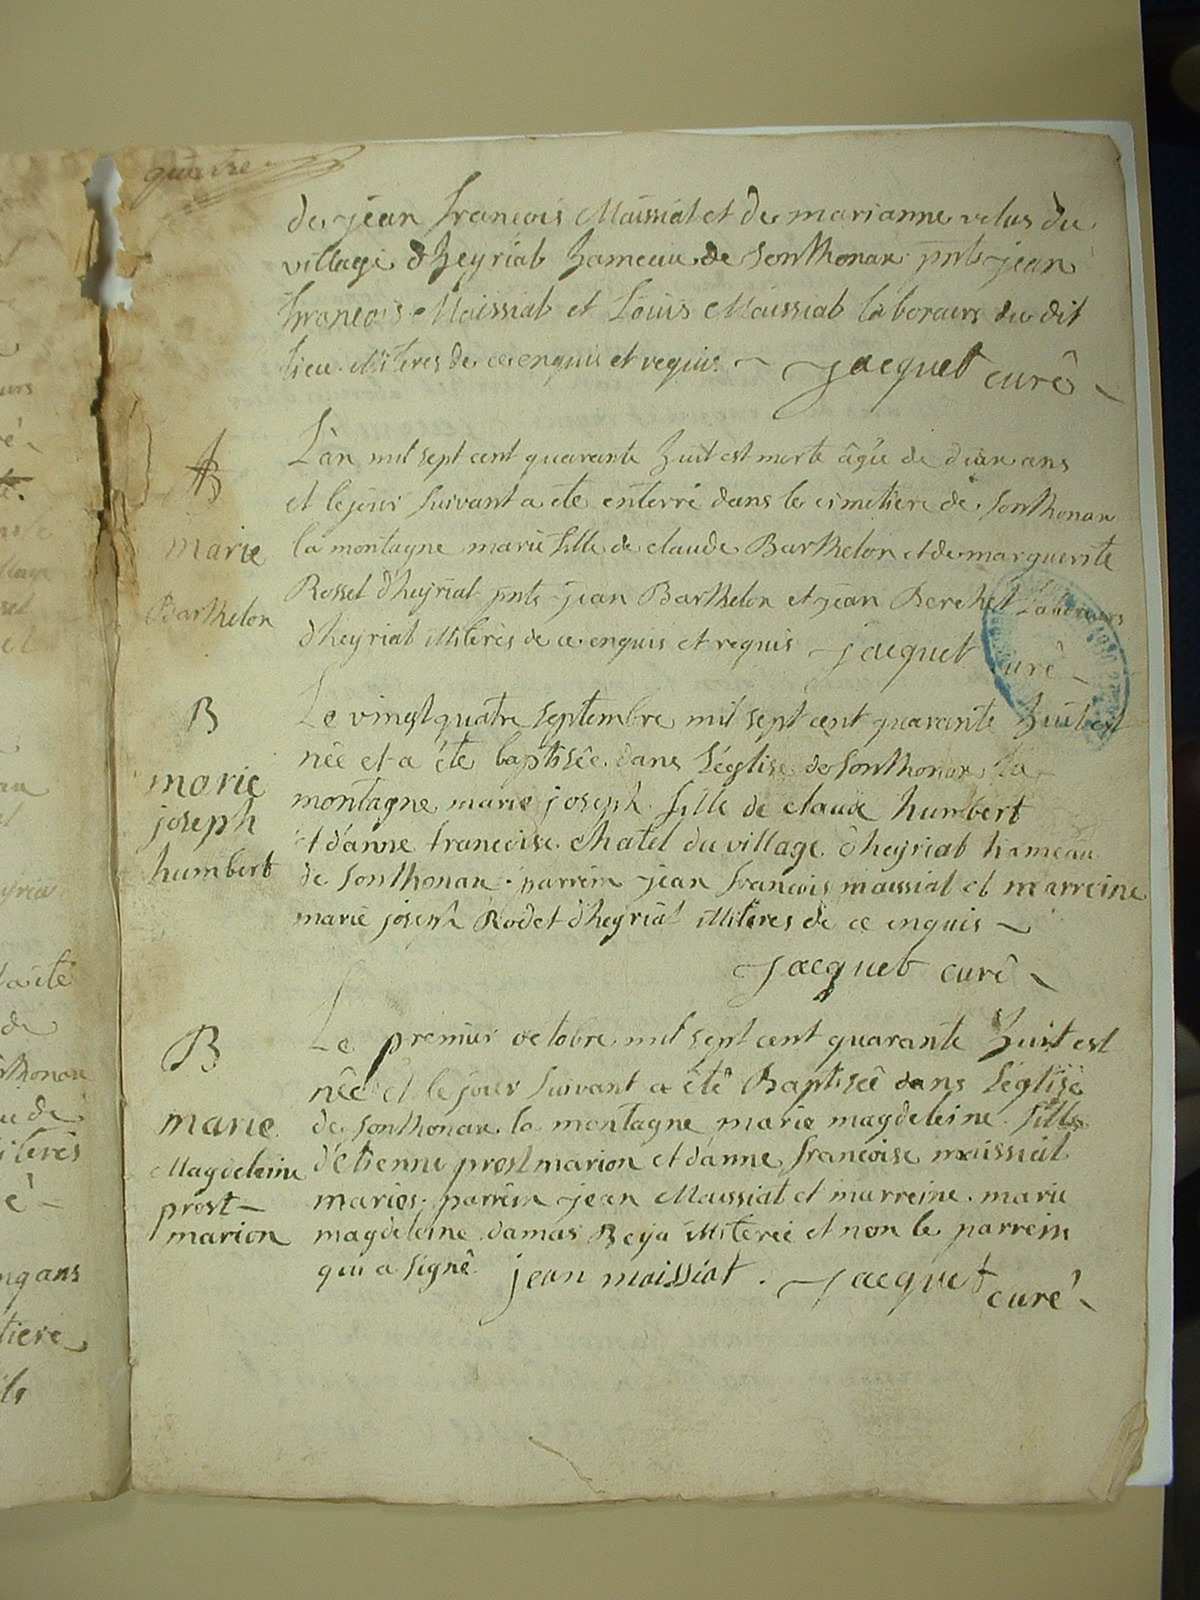 de jean francois Maissiat et de marianne velus du
village dheyriat hameau de Sonthonax pnts jean
francois Maissiat et Louis Maissiat laboraurs du dit
lieu illiteres de ce enquis et requis Jacquet curé
L'an mil sept cent quarante huit est morte âgée de ans
et le jour suivant a été enterré dans le cimetiere de Sonthonax
marie
Barthelon
la montagne marie fille de claude Barthelon et de marguerite
Rosset d'heyriat pnts jean Barthelon et jean Berchet laboraurs
d'heyriat illiterès de ce enquis et requis jacquet curé
B
marie
joseph
humbert
Le vingt quatre septembre mil sept cent quarante huit est
née et a été baptisée dans l'église de Sonthonax la
montagne marie joseph fille de claude humbert
et d'anne francoise Chatel du village d'heyriat hameau
de Sonthonax parrein jean francois maissiat et marreine
marie joseph Rodet d'heyriat illiteres de ce enquis
Jacquet curé
B
marie
Magdeleine
prost
marion
Le premier octobre mil sept cent quarante huit est
née et le jour suivant a été Baptisée dans l'église
de Sonthonax la montagne marie magdeleine fille
d'étienne prost marion et d'anne francoise maissiat
mariés parrein jean Maissiat et marreine marie
magdeleine damas illiterée et non le parrein
qui a signé jean maissiat. Jacquet curé